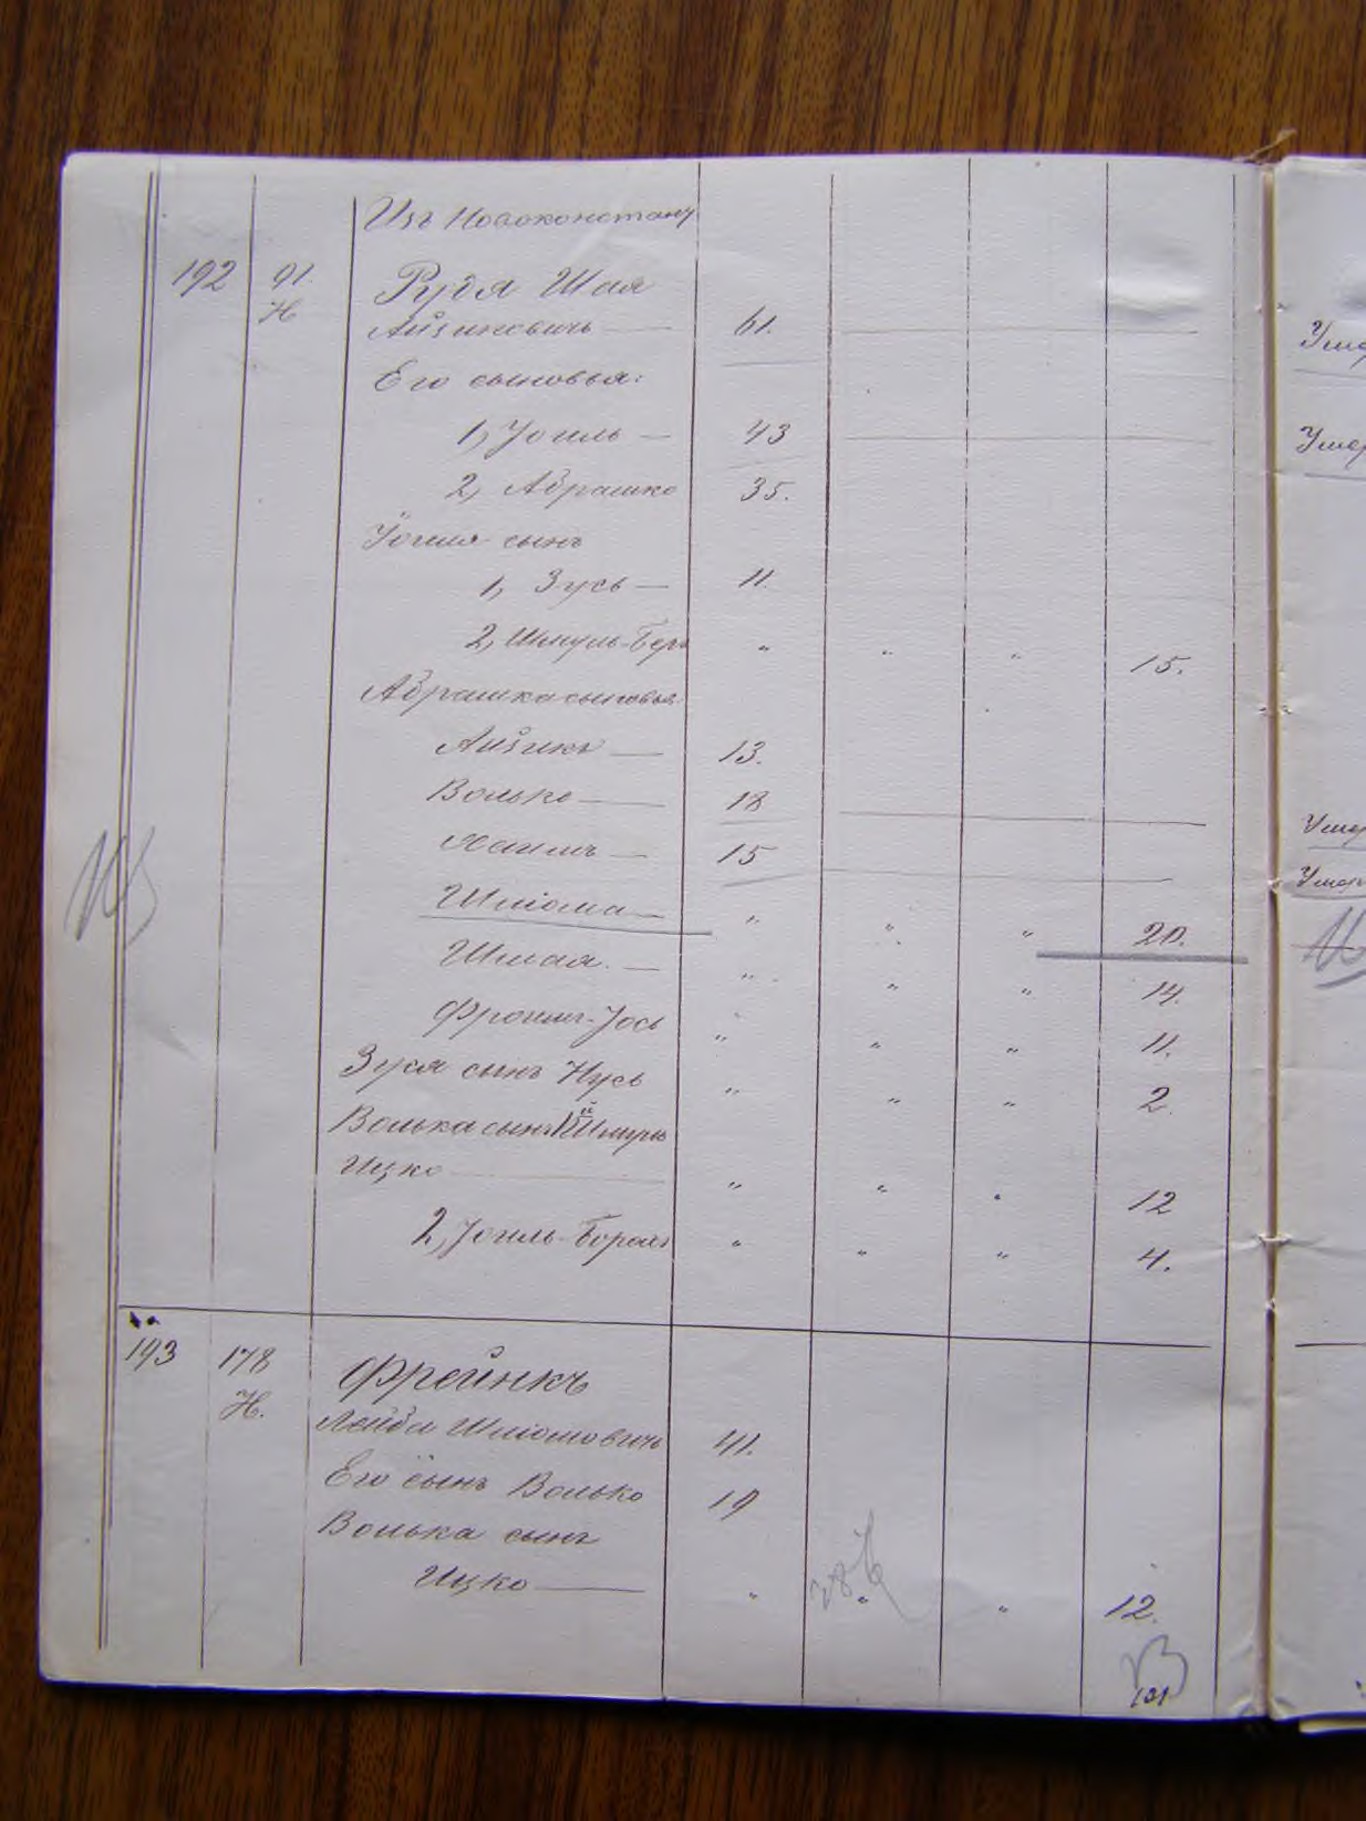 Изъ Новоконстант
192 91. Рудя Шая
Н Айзиковичь — 61.
Его сыновья:
1, Іоиль — 43
2, Абрашко 35.
Іоиля сынъ
1, Зусь — 11.
2, Шмуль-Беръ " " " 15.
Абрашка сыновья
Айзикъ — 13.
Волько — 18
Хаимъ — 15
Шліома — " " " 20.
Шмая. — " " " 14.
Фроимъ-Іось " " " 11.
Зуся сынъ Нусь " " " 2.
Волька сынъ Шмуль
Ицко " " " 12
2, Іоиль- " " " 4.
193 178 Фрейнкъ
Н. Лейба Шліомовичь 41.
Его сынъ Волько 19
Волька сынъ
Ицко — " " " 12.
101
Умер
Умер
Умер
Умеръ